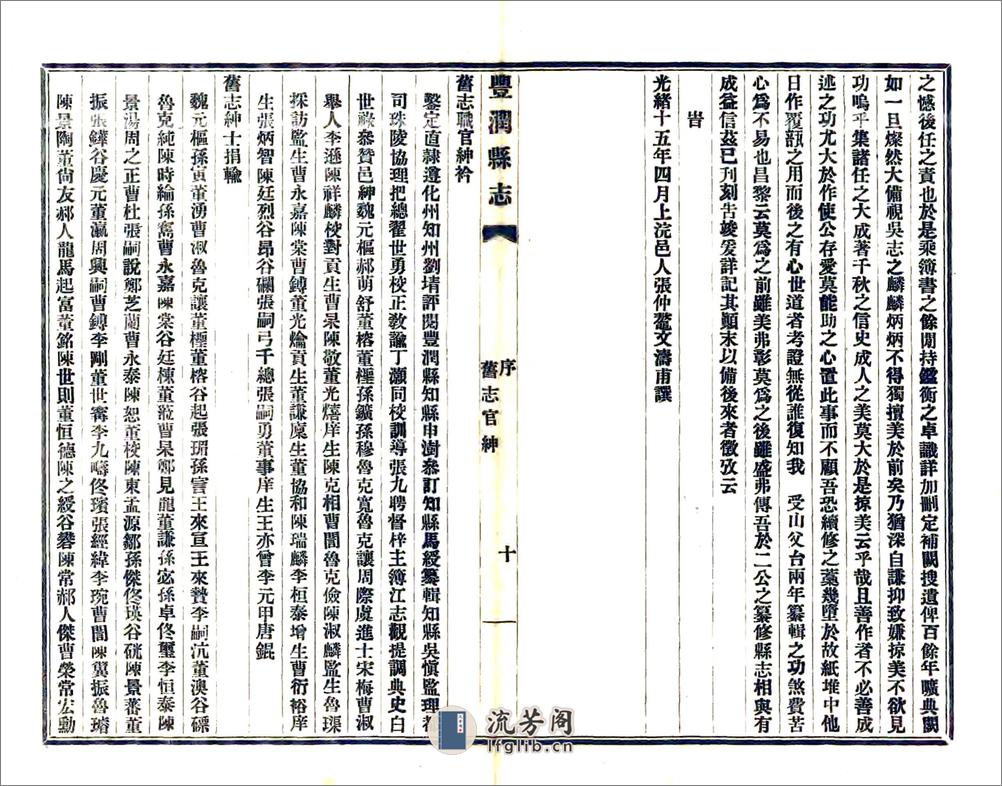 之憾後任之責也於是乘簿書之餘閒持鑑衡之卓識詳加刪定補闕搜遺俾百餘年曠典闕
如一旦燦然大備視吳志之麟麟炳炳不得獨擅美於前矣乃猶深自謙抑致嫌掠美不欲見
功嗚乎集諸任之大成著千秋之信史成人之美莫大於是掠美云乎哉且善作者不必善成
述之功尤大於作使公存愛莫能助之心置此事而不顧吾恐續修之藁幾墮於故紙堆中他
日作覆瓿之用而後之有心世道者考證無從誰復知我　受山父台兩年纂輯之功煞費苦
心為不易也昌黎云莫為之前雖美弗彰莫為之後雖盛弗傳吾於二公之纂修縣志相與有
成益信茲已刊刻告竣爰詳記其顛末以備後來者徵攷云
旹
光緒十五年四月上浣邑人張仲鼇文濤甫譔
豐潤縣志
序
舊志官紳
十
舊志職官紳衿
鑒定直隸遵化州知州劉埥評閱豐潤縣知縣申澍參訂知縣馬綬纂輯知縣吳慎監理
司珠陵協理把總翟世勇校正教諭丁灝同校訓導張九聘督梓主簿江志觀提調典史白
世祿參贊邑紳魏元樞郝萌舒董榕董榸孫鑛孫穆魯克寬魯克讓周際虞進士宋梅曹淑
舉人李遜陳祥麟校對貢生曹杲陳敬董光熺庠生陳克相曹誾魯克儉陳淑麟監生魯琛
採訪監生曹永嘉陳棠曹鎛董光爚貢生董謙廩生董協和陳瑞麟李桓泰增生曹衍裕庠
生張炳智陳廷烈谷昂谷礀張嗣弓千總張嗣勇董事庠生王亦曾李元甲唐錕
舊志紳士捐輸
魏元樞孫寅董湧曹淑魯克讓董榸董榕谷起張瑂孫讆王來宣王來贄李嗣沆董澳谷礫
魯克純陳時綸孫寯曹永嘉陳棠谷廷棟董涖曹杲鄭見龍董謙孫宓孫卓佟璽李恒泰陳
景湯周之正曹杜張嗣說鄭芝蘭曹永泰陳恕董棱陳東孟源鄒孫傑佟瑛谷硄陳景蕃董
振張鏵谷慶元董瀛周興嗣曹鎛李剛董世㝇李九疇佟璸張經緯李琬曹誾陳冀振魯璿
陳景陶董尚友郝人龍馬起富董銘陳世則董恒德陳之綬谷礬陳常郝人傑曹榮常宏勳
流芳阁
lfglib.cn